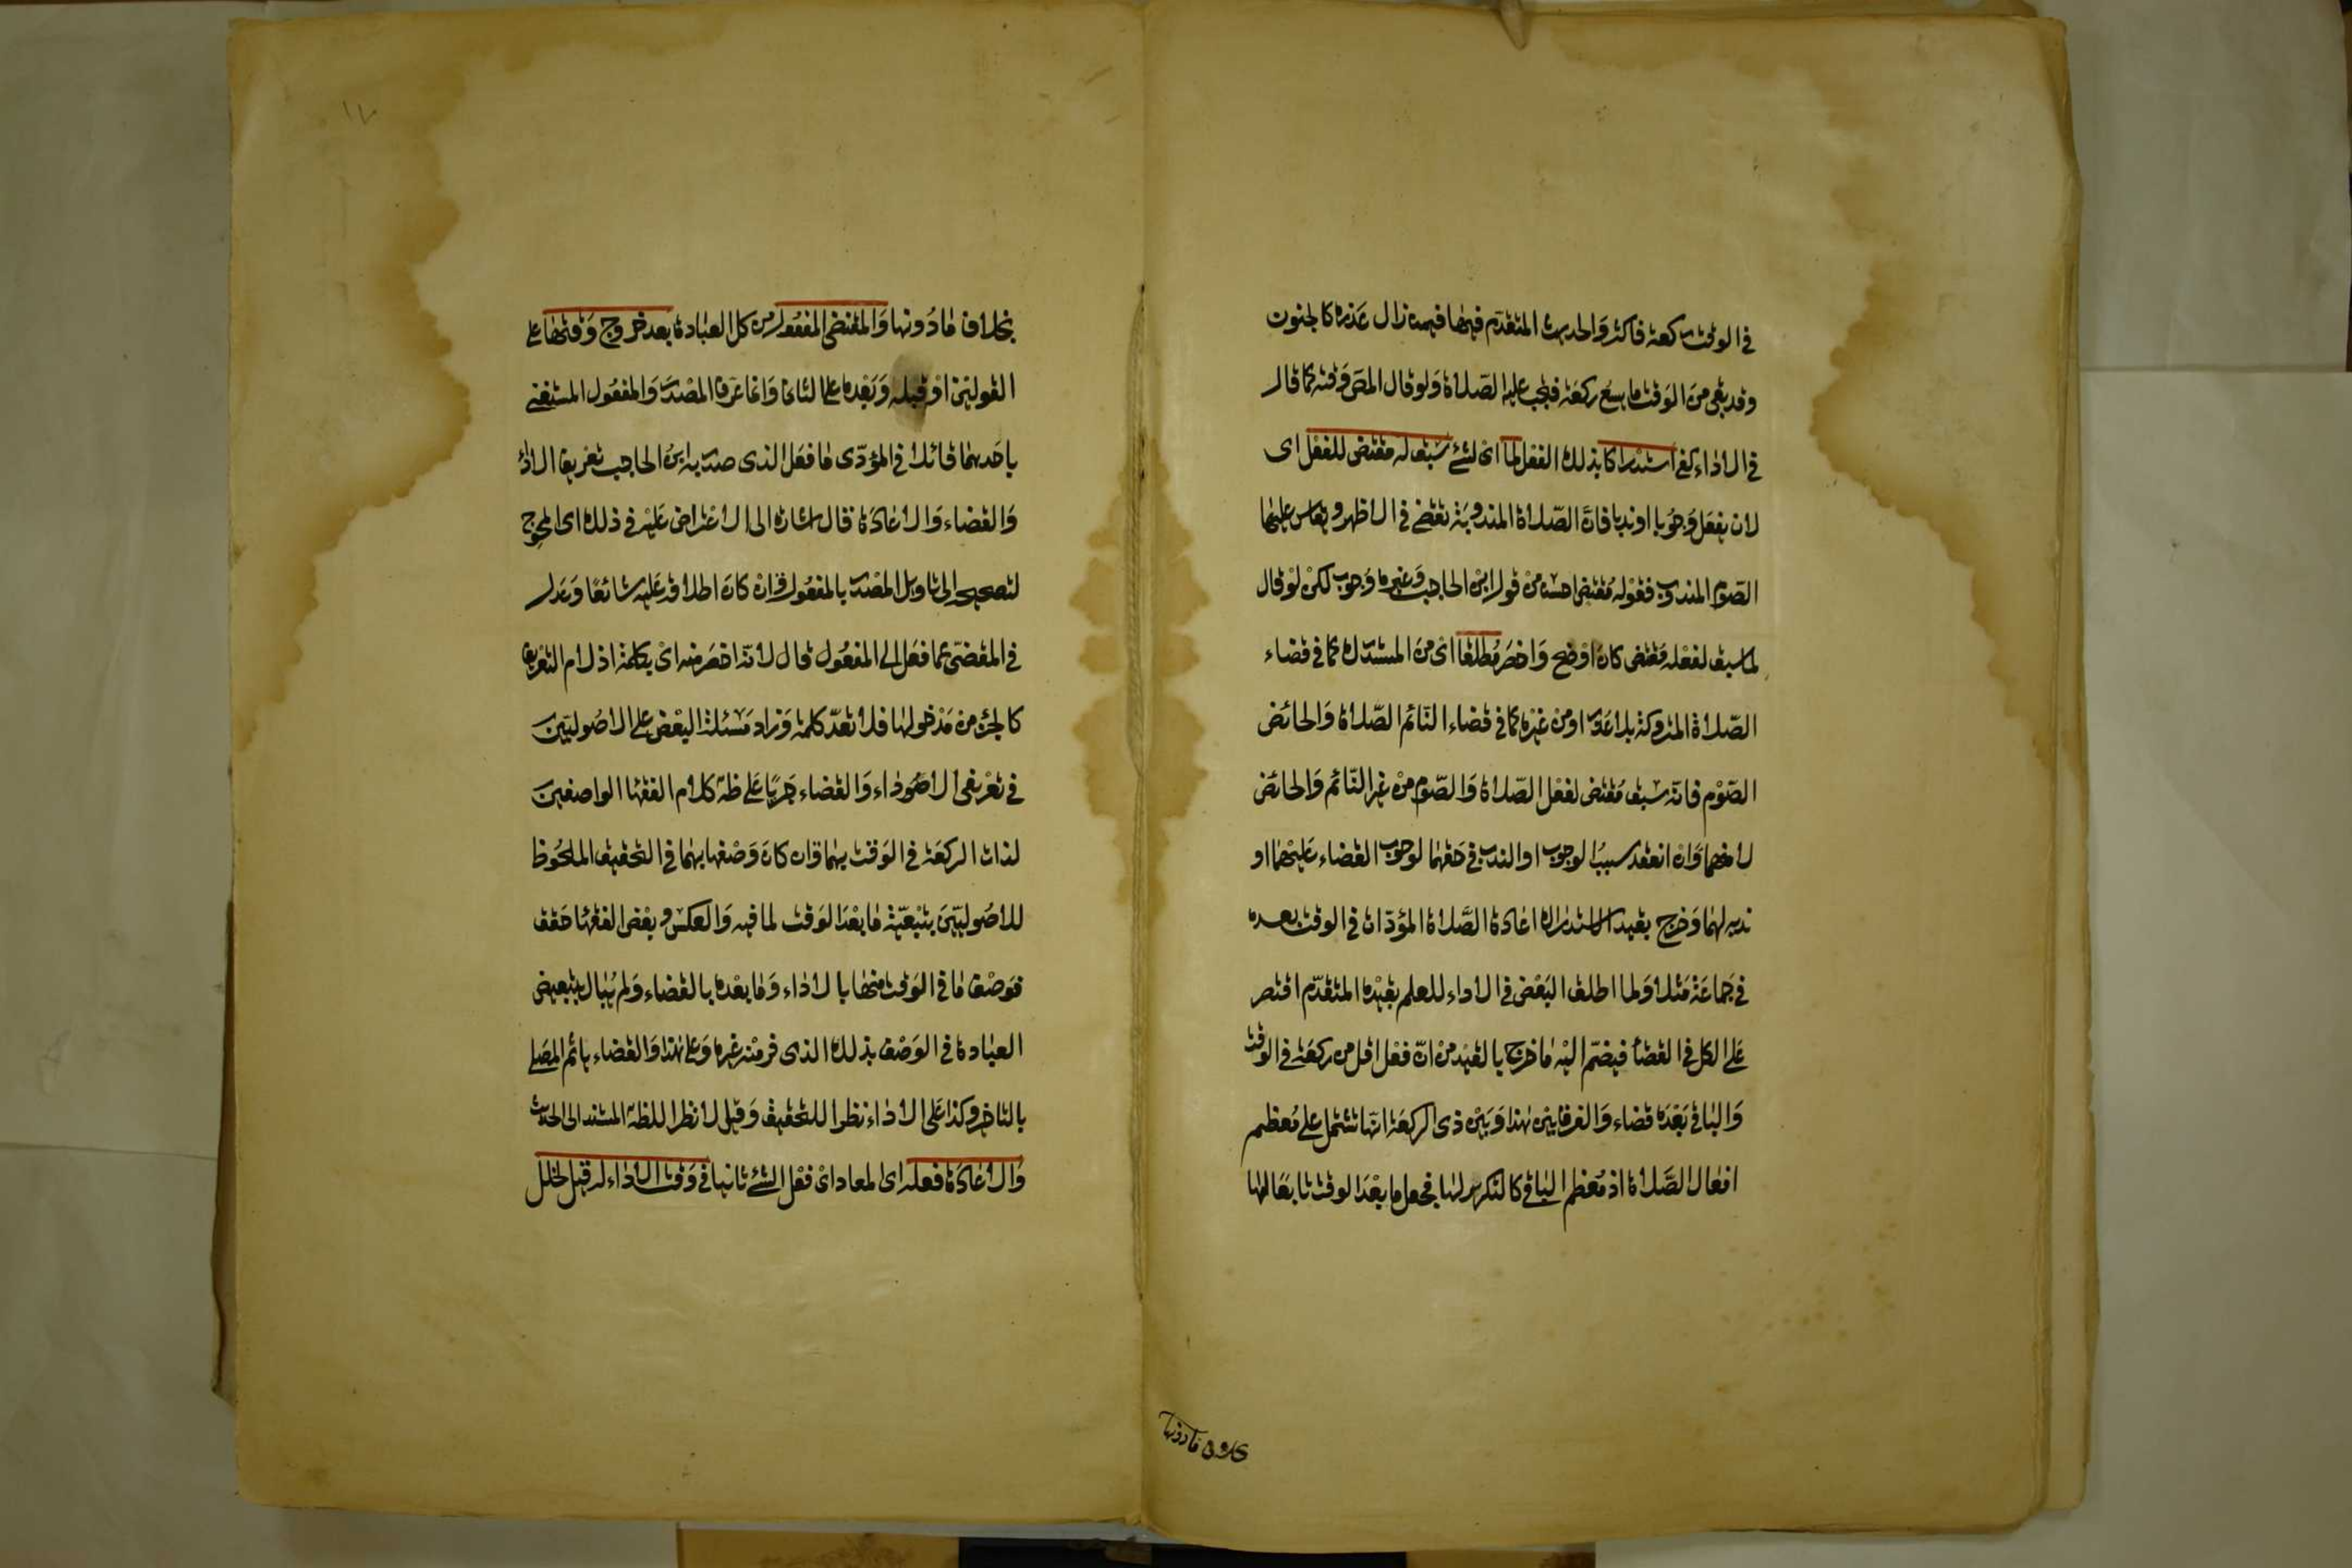 في الوقت ركعة فاكثر والحديث المتقدم فيها فيمن زال عذره كالجنون
وقد بقي من الوقت ما يسع ركعة فيجب عليه الصلاة ولو قال المص وقته كما قال
في الاداء كفى استدراكا بذلك الفعل لما اي لشئ سبق له مقتض للفعل اى
لان يفعل وجوبا او ندبا فان الصلاة المندوبة تقضى في الاظهر ويقاس عليها
الصوم المندوب فقوله مقتض احسن من قول ابن الحاجب وغيره وجوب لكن لو قال
لما سبق لفعله مقتض كان اوضح واخصر مطلقا اى من المستدرك كما في قضاء
الصلاة المتروكة بلا عذر او من غيره كما في قضاء النائم الصلاة والحائض
الصوم فانه سبق مقتض لفعل الصلاة والصوم من غير النائم والحائض
لا منهما وان انعقد سبب الوجوب او الندب في حقهما لوجوب القضاء عليهما او
ندبه لهما وخرج بقيد الاستدراك اعادة الصلاة المؤداة في الوقت بعده
في جماعة مثلا ولما اطلق البعض في الاداء للعلم بقيده المتقدم اقتصر
على الكل في القضاء فيضم اليه ما خرج بالقيد من ان فعل اقل من ركعة في الوقت
والباقي بعده قضاء والفرق بين هذا وبين ذى الركعة انها تشتمل على معظم
افعال الصلاة اذ معظم الباقي كالتكرير لها فجعل ما بعد الوقت تابعا لها
بخلاف مادونها
بخلاف ما دونها والمقضى المفعول من كل العبادة بعد خروج وقتها على
القولين او قبله وبعده على الثاني وانما عرف المصدر والمفعول المستغنى
باحدهما قائلا في المؤدى ما فعل الذى صدر به ابن الحاجب تعريف الاداء
والقضاء والاعادة قال اشارة الى الاعتراض عليه في ذلك اى المحوج
لتصحيحه الى تاويل المصدر بالمفعول وان كان اطلاقه عليه شائعا وعدل
في المقضى عما فعل الى المفعول قال لانه اخصر منه اى بكلمة اذ لام التعريف
كالجزء من مدخولها فلا تعد كلمة وزاد مسئلة البعض على الاصوليين
في تعريفى الاداء والقضاء جريا على ظه كلام الفقها الواصفين
لذات الركعة في الوقت بهما وان كان وصفها بهما في التحقيق الملحوظ
للاصوليين بتبعية ما بعد الوقت لما فيه والعكس وبعض الفقها حقق
فوصف ما في الوقت منها بالاداء وما بعده بالقضاء ولم يبال بتبعيض
العبادة في الوصف بذلك الذى فر منه غيره وعلى هذا والقضاء يائم المصلى
بالتاخير وكذا على الاداء نظرا للتحقيق وقيل لا نظرا للظه المستند الى الحديث
والاعادة فعله اى المعاد اى فعل الشئ ثانيا في وقت الاداء له قيل لخلل
١٧